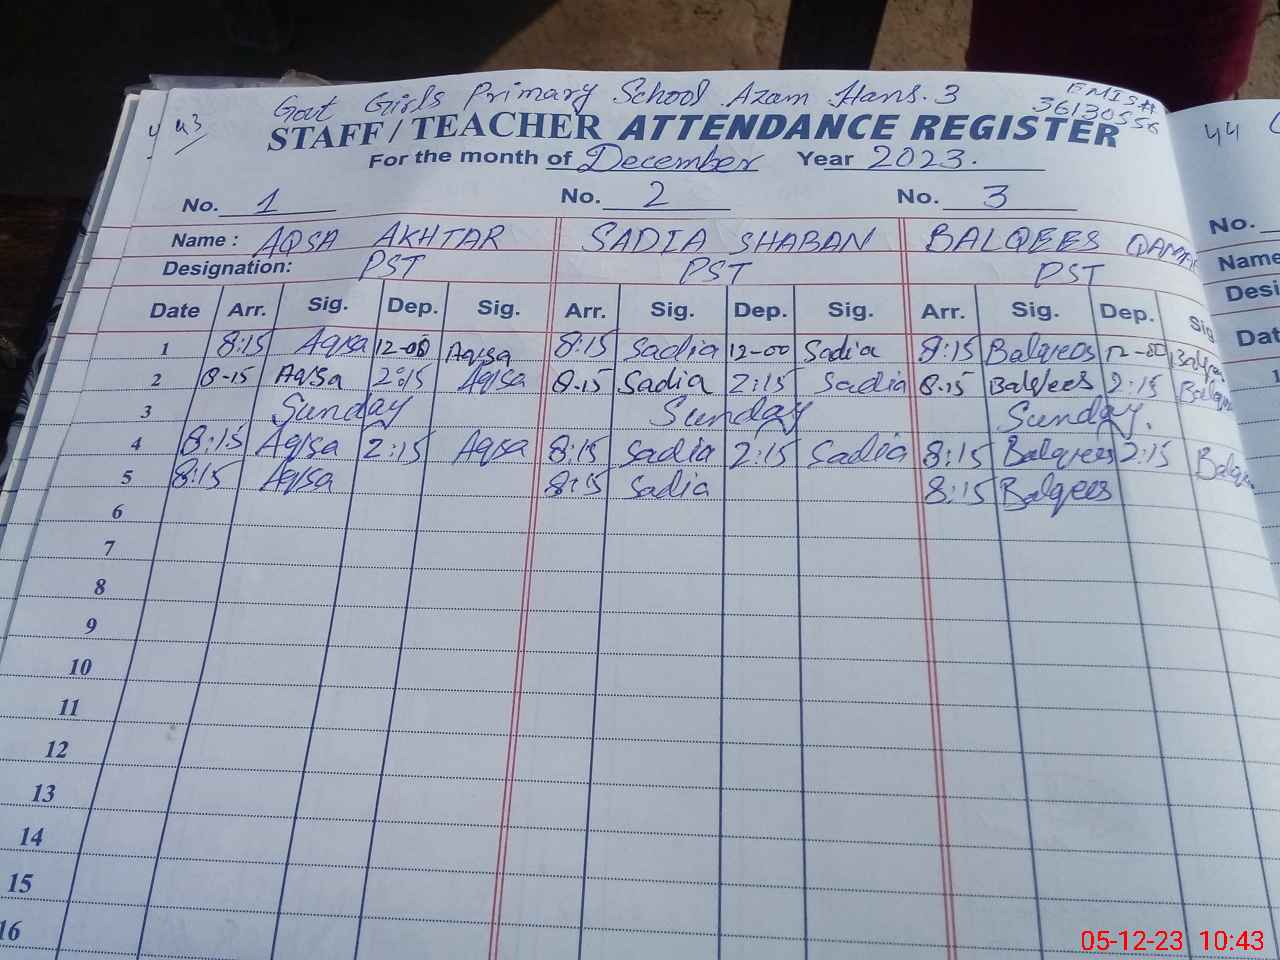 Govt Girls Primary School Azam Hans. 3
EMIS#
36130556
43
STAFF/TEACHER ATTENDANCE REGISTER
44
For the month of December Year 2023.
No. 1 No. 2 No. 3
No.
Name : AQSA AKHTAR SADIA SHABAN BALQEES
Name
Designation: PST PST PST
Desi
Date Arr. Sig. Dep. Sig. Arr. Sig. Dep. Sig. Arr. Sig. Dep. Sig
Dat
1 8:15 Aqsa 12-00 Aqsa 8:15 Sadia 12-00 Sadia 8:15 Balqees 12-00
2 8-15 Aqsa 2:15 Aqsa 8.15 Sadia 2:15 Sadia 8.15 Balqees 2:15
3 Sunday Sunday Sunday.
4 8:15 Aqsa 2:15 Aqsa 8:15 Sadia 2:15 Sadia 8:15 Balqees 2:15
5 8:15 Aqsa 8:15 Sadia 8:15 Balqees
6
7
8
9
10
11
12
13
14
15
16
05-12-23 10:43